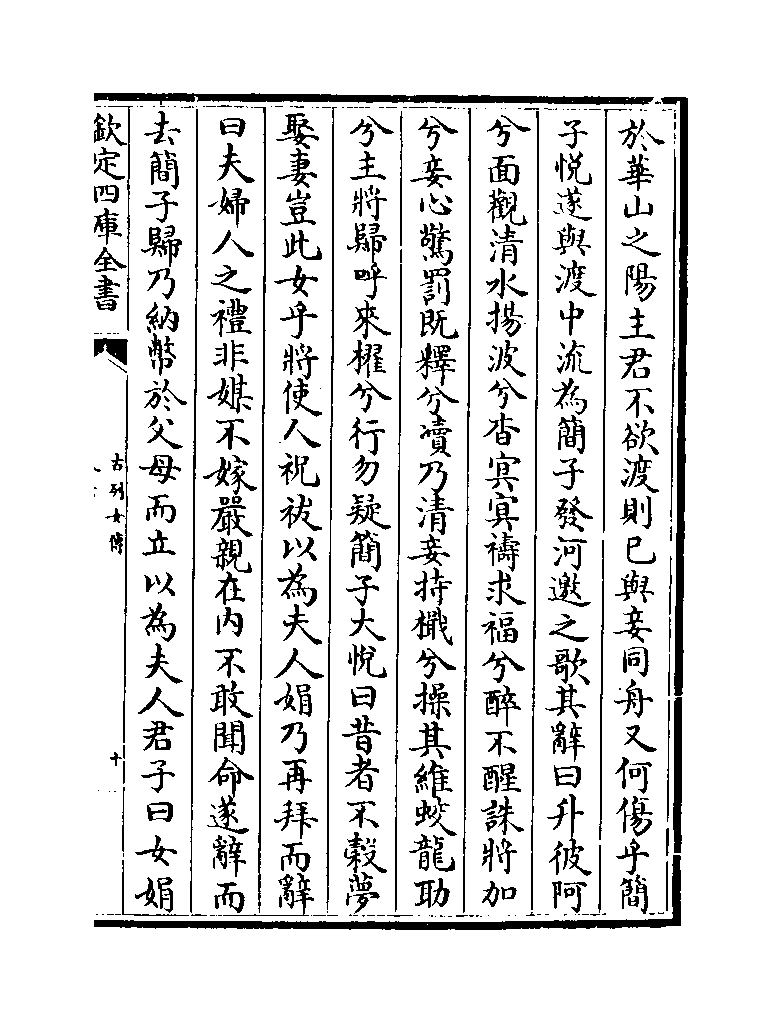 於華山之陽主君不欲渡則已與妾同舟又何傷乎簡
子悅遂與渡中流為簡子發河邀之歌其辭曰升彼阿
兮面觀清水揚波兮杳冥冥禱求福兮醉不醒誅將加
兮妾心驚罰既釋兮瀆乃清妾持檝兮操其維蛟龍助
兮主將歸呼來櫂兮行勿疑簡子大悅曰昔者不穀夢
娶妻豈此女乎將使人祝祓以為夫人娟乃再拜而辭
曰夫婦人之禮非媒不嫁嚴親在內不敢聞命遂辭而
去簡子歸乃納幣於父母而立以為夫人君子曰女娟
欽定四庫全書
古列女傳
十